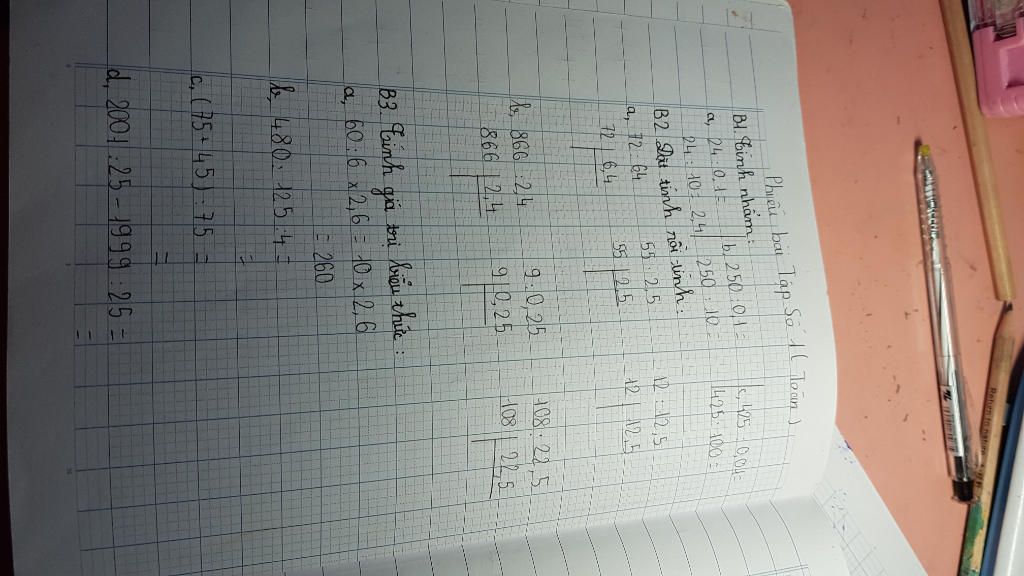 Phiếu bài Tập Số 1 ( Toán )
B1 Tính nhẩm:
a, 24 : 0.1 = b, 250 : 0,1 = c, 425 : 0,01 =
24 : 10 = 2,4 250 : 10 = 425 : 100 =
B2 Đặt tính rồi tính:
a, 72 : 64 55 : 2.5 12 : 12,5
72 6,4 55 2,5 12 12,5
b, 866 : 2,4 9 : 0,25 108 : 22,5
866 2,4 9 0,25 108 22,5
B3. Tính giá trị biểu thức:
a, 60 : 6 x 2,6 = 10 x 2,6
= 260
b, 480 : 125 : 4 =
=
c, ( 75 + 45 ) : 75 =
=
d, 2001 : 25 - 1999 : 25 =
=